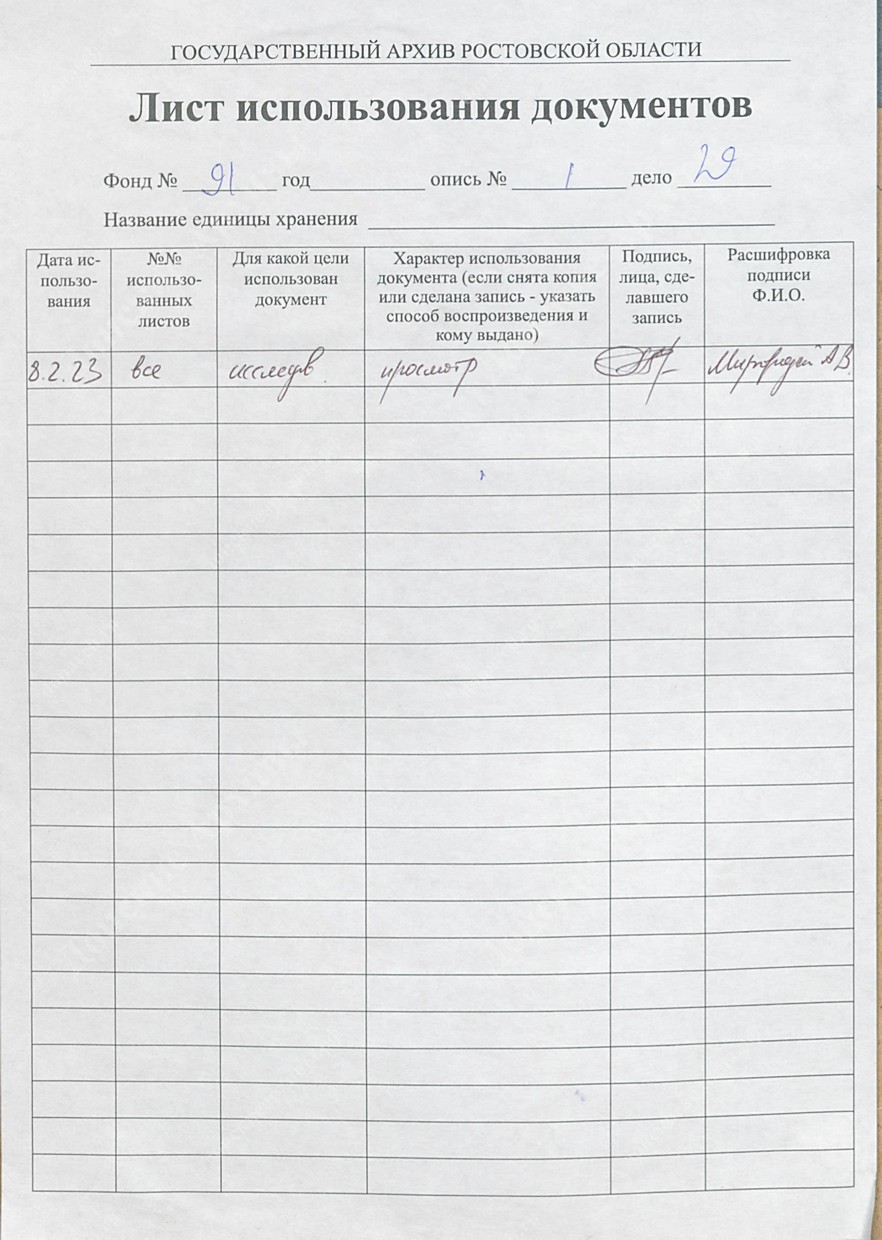 ГОСУДАРСТВЕННЫЙ АРХИВ РОСТОВСКОЙ ОБЛАСТИ
Лист использования документов
Фонд № 91 год опись № 1 дело 29
Название единицы хранения
Дата ис-
пользо-
вания
№№
использо-
ванных
листов
Для какой цели
использован
документ
Характер использования
документа (если снята копия
или сделана запись - указать
способ воспроизведения и
кому выдано)
Подпись,
лица, сде-
лавшего
запись
Расшифровка
подписи
Ф.И.О.
8.2.23 все исследов. просмотр А В